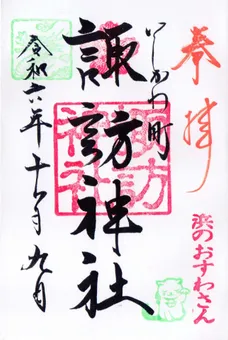 奉拝
浜のおすわさん
いしかわ町
諏訪神社
諏訪神社
令和六年十一月九日